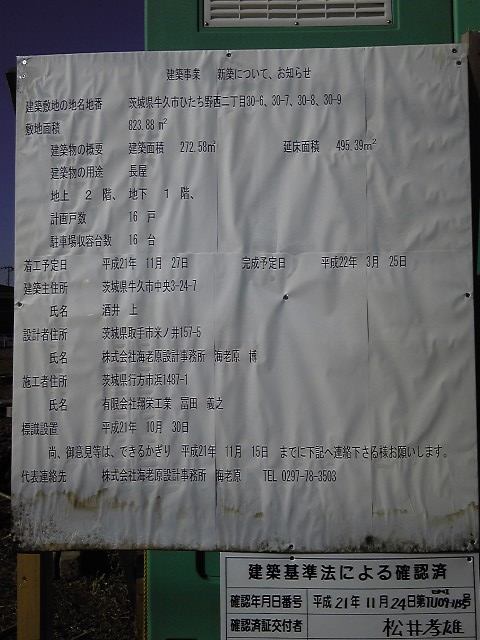 建築事業　新築について、お知らせ
建築敷地の地名地番　茨城県牛久市ひたち野西二丁目30-6、30-7、30-8、30-9
敷地面積　623.88 ㎡
建築物の概要　建築面積　272.58㎡　延床面積　495.39㎡
建築物の用途　長屋
地上　２　階、　地下　１　階、
計画戸数　16　戸
駐車場収容台数　16　台
着工予定日　平成21年　11月　27日　完成予定日　平成22年　3月　25日
建築主住所　茨城県牛久市中央3-24-7
氏名　酒井　上
設計者住所　茨城県取手市米ノ井157-5
氏名　株式会社海老原設計事務所　海老原　博
施工者住所　茨城県行方市浜1487-1
氏名　有限会社翔栄工業　冨田　義之
標識設置　平成21年　10月　30日
尚、御意見等は、できるかぎり　平成21年　11月　15日　までに下記へ連絡下さる様お願いします。
代表連絡先　株式会社海老原設計事務所　海老原　TEL 0297-78-3503
建築基準法による確認済
確認年月日番号　平成21年11月24日第 号
確認済証交付者　松井孝雄